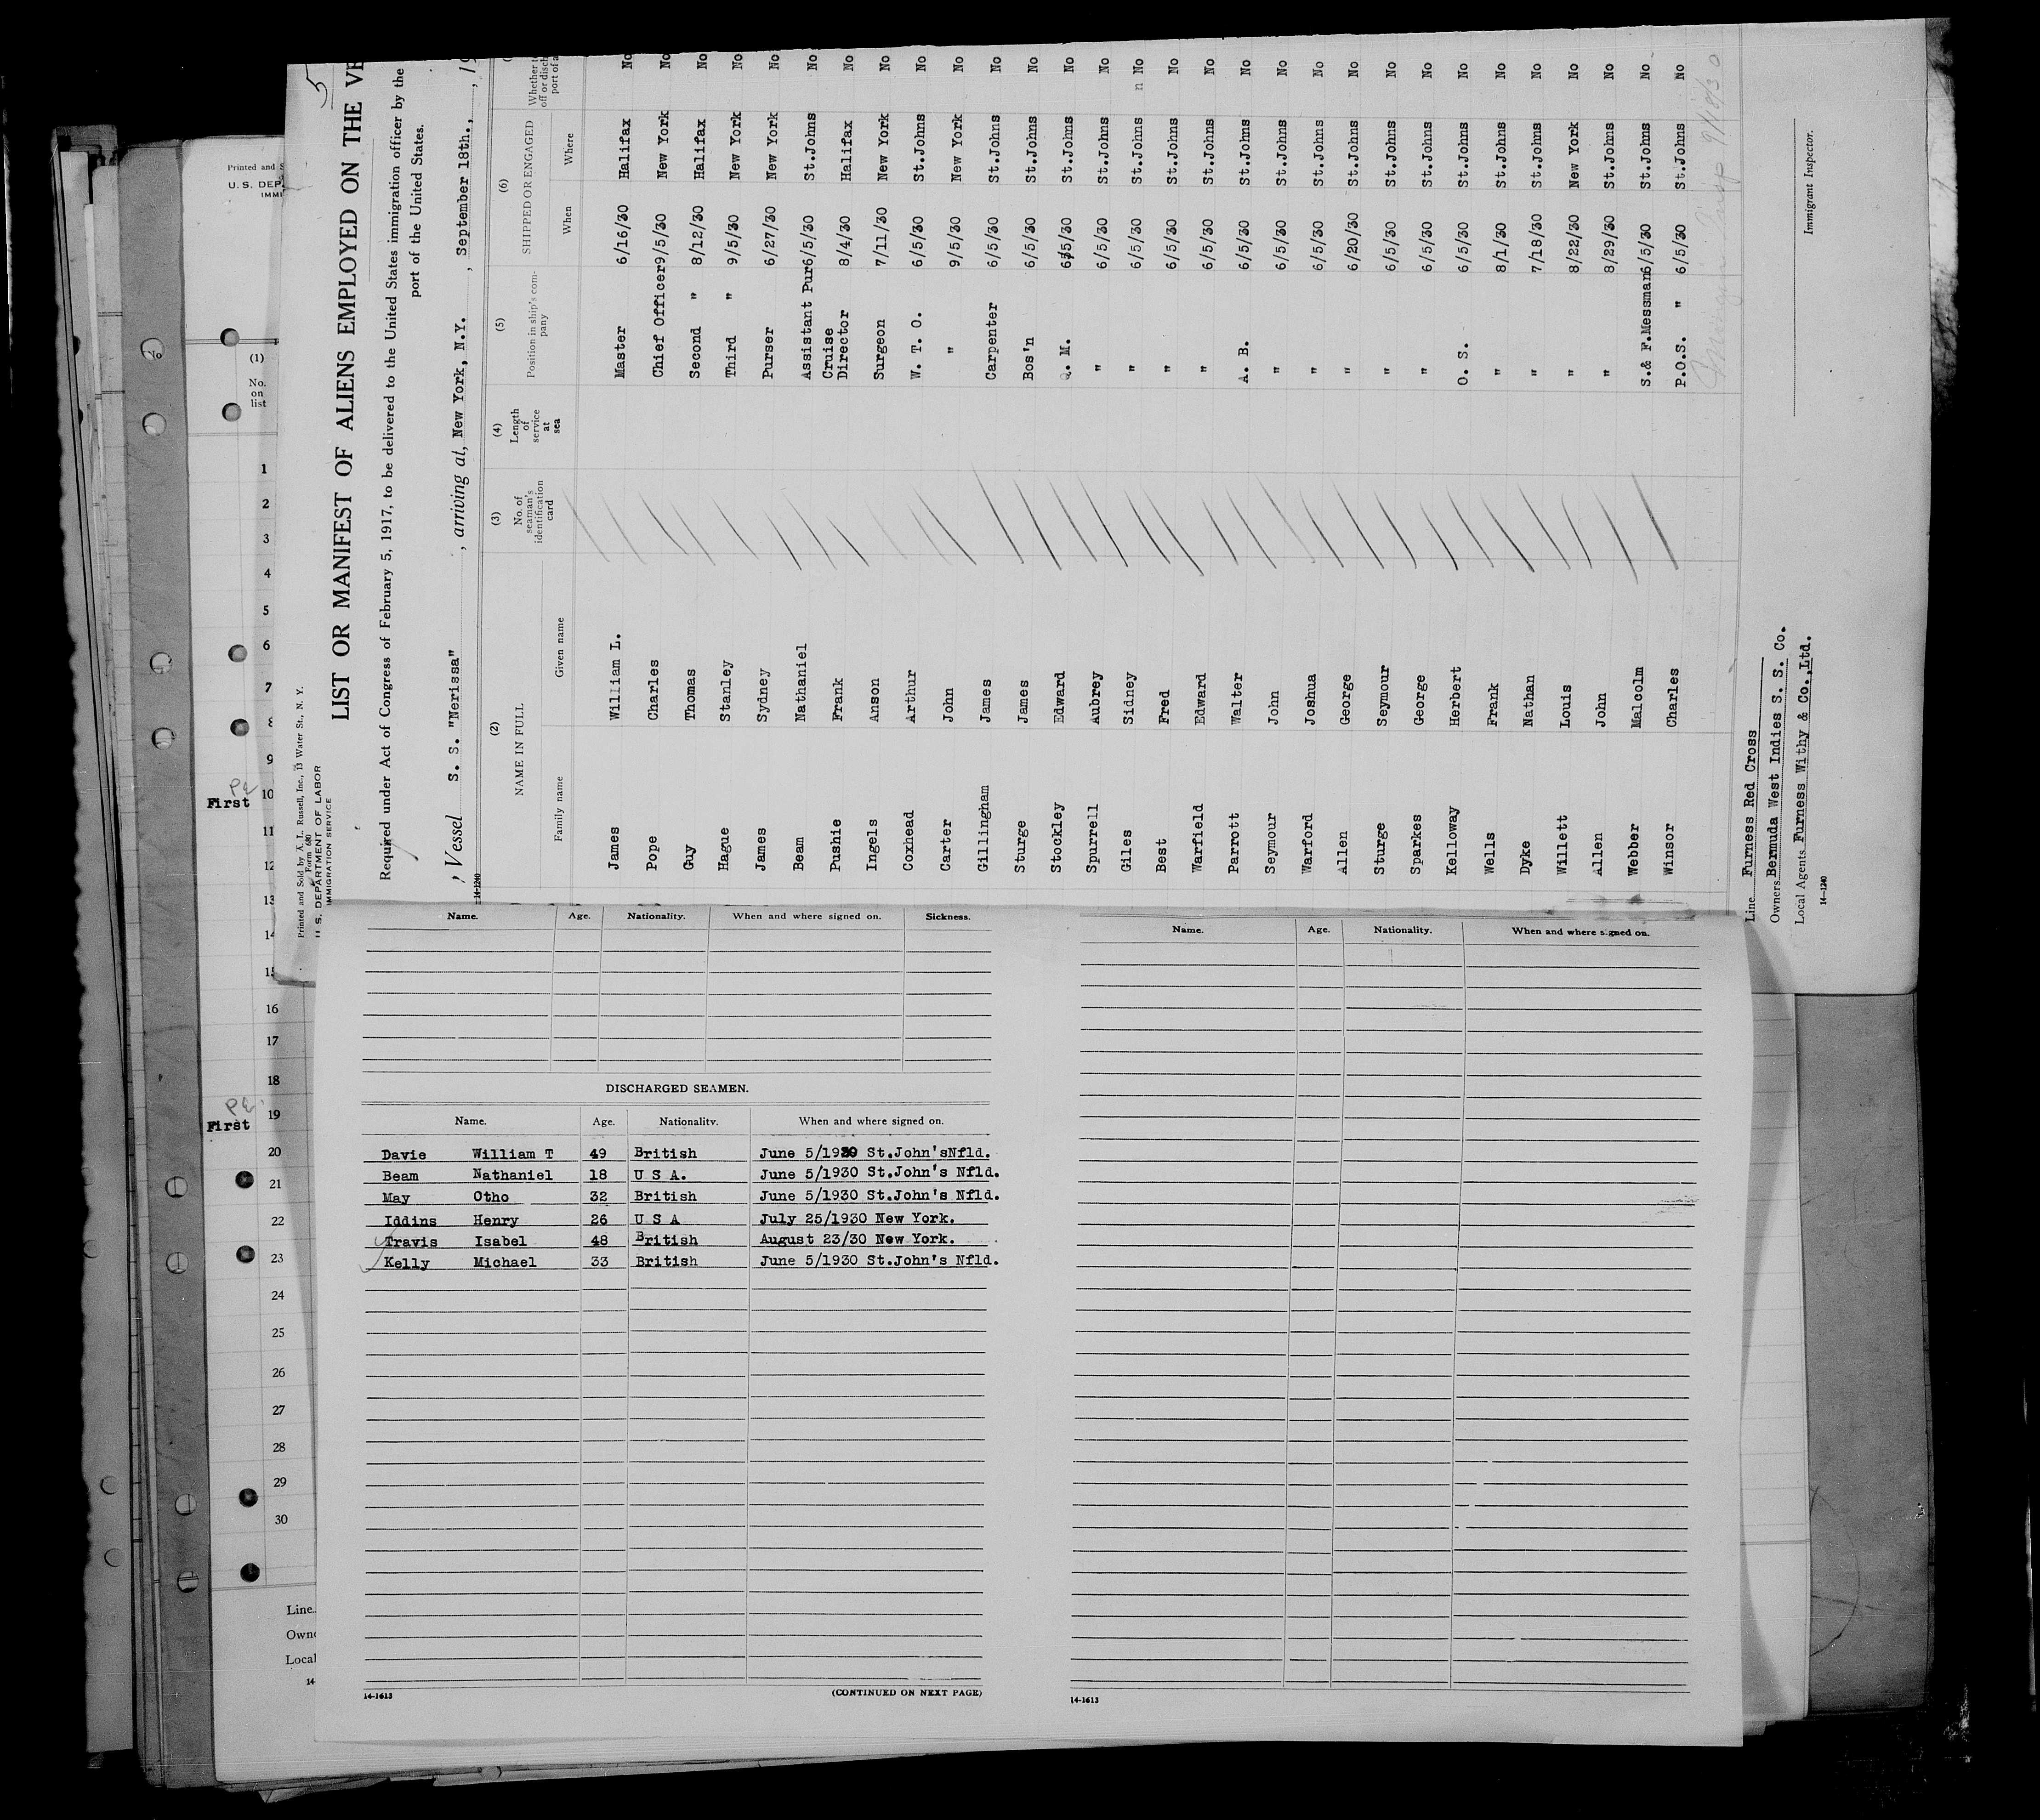 5
Printed and Sold by A. L. Russell, Inc., 13 Water St., N. Y.
Form 680
U. S. DEPARTMENT OF LABOR
IMMIGRATION SERVICE
LIST OR MANIFEST OF ALIENS EMPLOYED ON THE VE
Required under Act of Congress of February 5, 1917, to be delivered to the United States immigration officer by the
port of the United States.
, Vessel S. S. "Nerissa" , arriving at, New York, N.Y. , September 18th., , 19
14-1240
(2) (3) (4) (5) (6)
NAME IN FULL No. of seaman's identification card Length of service at sea Position in ship's company SHIPPED OR ENGAGED Whether to
off or disch
port of a
Family name Given name When Where
James William L. Master 6/16/30 Halifax No
Pope Charles Chief Officer 9/5/30 New York No
Guy Thomas Second " 8/12/30 Halifax No
Hague Stanley Third " 9/5/30 New York No
James Sydney Purser 6/27/30 New York No
Beam Nathaniel Assistant Pur 6/5/30 St.Johns No
Pushie Frank Cruise Director 8/4/30 Halifax No
Ingels Anson Surgeon 7/11/30 New York No
Coxhead Arthur W. T. O. 6/5/30 St.Johns No
Carter John " 9/5/30 New York No
Gillingham James Carpenter 6/5/30 St.Johns No
Sturge James Bos'n 6/5/30 St.Johns No
Stockley Edward Q. M. 6/5/30 St.Johns No
Spurrell Aubrey " 6/5/30 St.Johns No
Giles Sidney " 6/5/30 St.Johns n No
Best Fred " 6/5/30 St.Johns No
Warfield Edward " 6/5/30 St.Johns No
Parrott Walter A. B. 6/5/30 St.Johns No
Seymour John " 6/5/30 St.Johns No
Warford Joshua " 6/5/30 St.Johns No
Allen George " 6/20/30 St.Johns No
Sturge Seymour " 6/5/30 St.Johns No
Sparkes George " 6/5/30 St.Johns No
Kelloway Herbert O. S. 6/5/30 St.Johns No
Wells Frank " 8/1/30 St.Johns No
Dyke Nathan " 7/18/30 St.Johns No
Willett Louis " 8/22/30 New York No
Allen John " 8/29/30 St.Johns No
Webber Malcolm S.& F.Messman 6/5/30 St.Johns No
Winsor Charles P.O.S. " 6/5/30 St.Johns No
9/18/30
Line Furness Red Cross
Owners Bermuda West Indies S. S. Co.
Local Agents Furness Withy & Co.,Ltd.
Immigrant Inspector.
14-1240
Printed and S
U. S. DEP
IMMI
No
(1)
No.
on
list
1
2
3
4
5
6
7
8
9
First 10
11
12
13
14
15
16
17
18
First 19
20
21
22
23
24
25
26
27
28
29
30
Line
Owne
Local
14-
Name. Age. Nationality. When and where signed on. Sickness.
DISCHARGED SEAMEN.
Name. Age. Nationality. When and where signed on.
Davie William T 49 British June 5/1930 St.John'sNfld.
Beam Nathaniel 18 U S A. June 5/1930 St.John's Nfld.
May Otho 32 British June 5/1930 St.John's Nfld.
Iddins Henry 26 U S A July 25/1930 New York.
Travis Isabel 48 British August 23/30 New York.
Kelly Michael 33 British June 5/1930 St.John's Nfld.
14-1613
(CONTINUED ON NEXT PAGE)
Name. Age. Nationality. When and where signed on.
14-1613